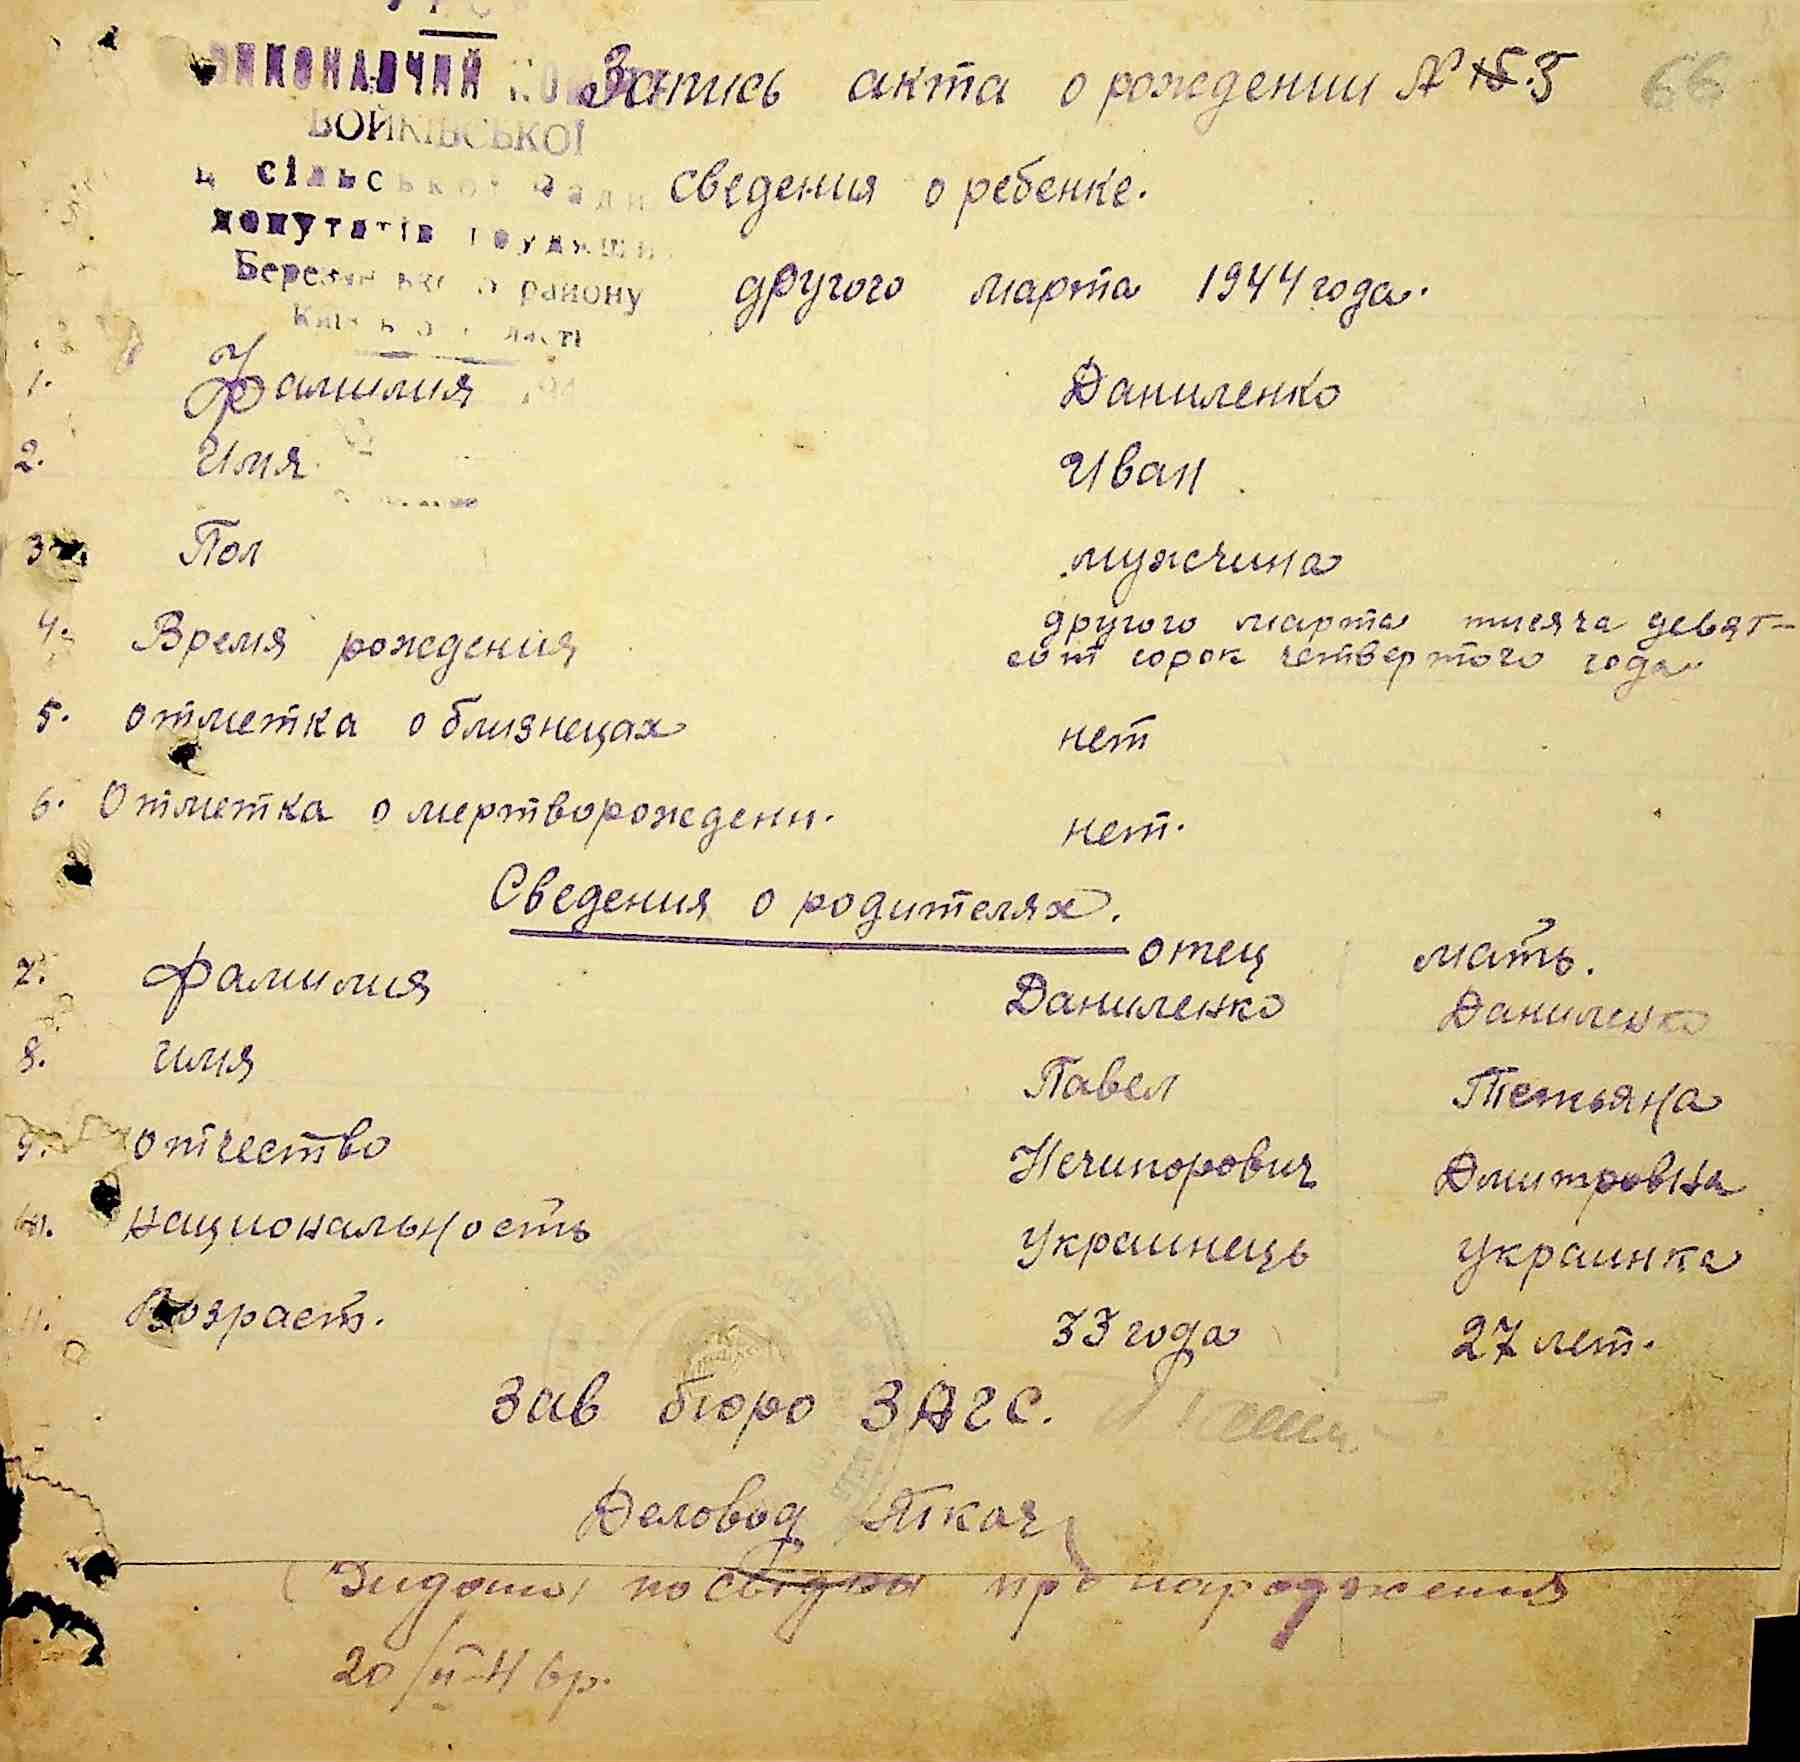 ВИКОНАВЧИЙ
Запись акта о рождении № 5
66
ВОЙКІВСЬКОЇ
сільської Ради
сведения о ребенке.
депутатів трудящих
Березанського району
другого марта 1944 года.
1. Фамилия Даниленко
2. Имя Иван
3. Пол мужчина
4. Время рождения другого марта тисяча девят-
сот сорок четвертого года
5. отметка о близнецах нет
6. Отметка о мертворождени. нет.
Сведения о родителях.
отец мать.
7. Фамилия Даниленко Даниленко
8. имя Павел Тетьяна
9. отчество Нечипорович Дмитровна
10. национальность Украинець украинка
11. Возраст. 33 года 27 лет.
Зав бюро ЗАГС.
Деловод Ткач
посвідка про народження